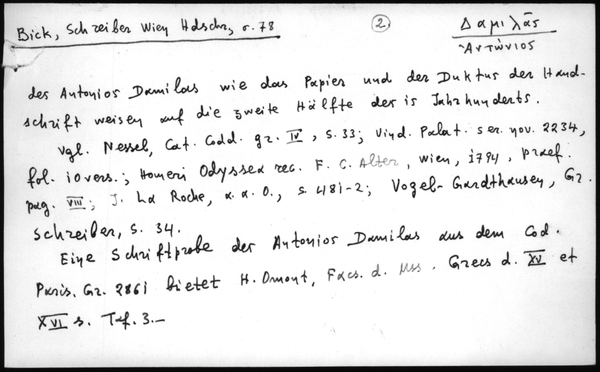 Bick, Schreiber Wien Hdschr, σ. 78
2.
Δαμιλᾶς
Ἀντώνιος
des Antonios Damilas wie das Papier und der Duktus der Hand-
schrift weisen auf die zweite Hälfte des 15 Jahrhunderts.
Vgl. Nessel, Cat. Codd. gr. IV, S. 33; Vind. Palat. ser. nov. 2234,
fol. 10 vers.; Homeri Odyssea rec. F. C. Alter, Wien, 1794, praef.
pag. VIII; J. La Roche, a. a. O., S. 481-2; Vogel-Gardthausen, Gr.
Schreiber, S. 34.
Eine Schriftprobe des Antonios Damilas aus dem Cod.
Paris. Gr. 2861 bietet H. Omont, Facs. d. Mss. Grecs d. XV et
XVI s. Taf. 3.—